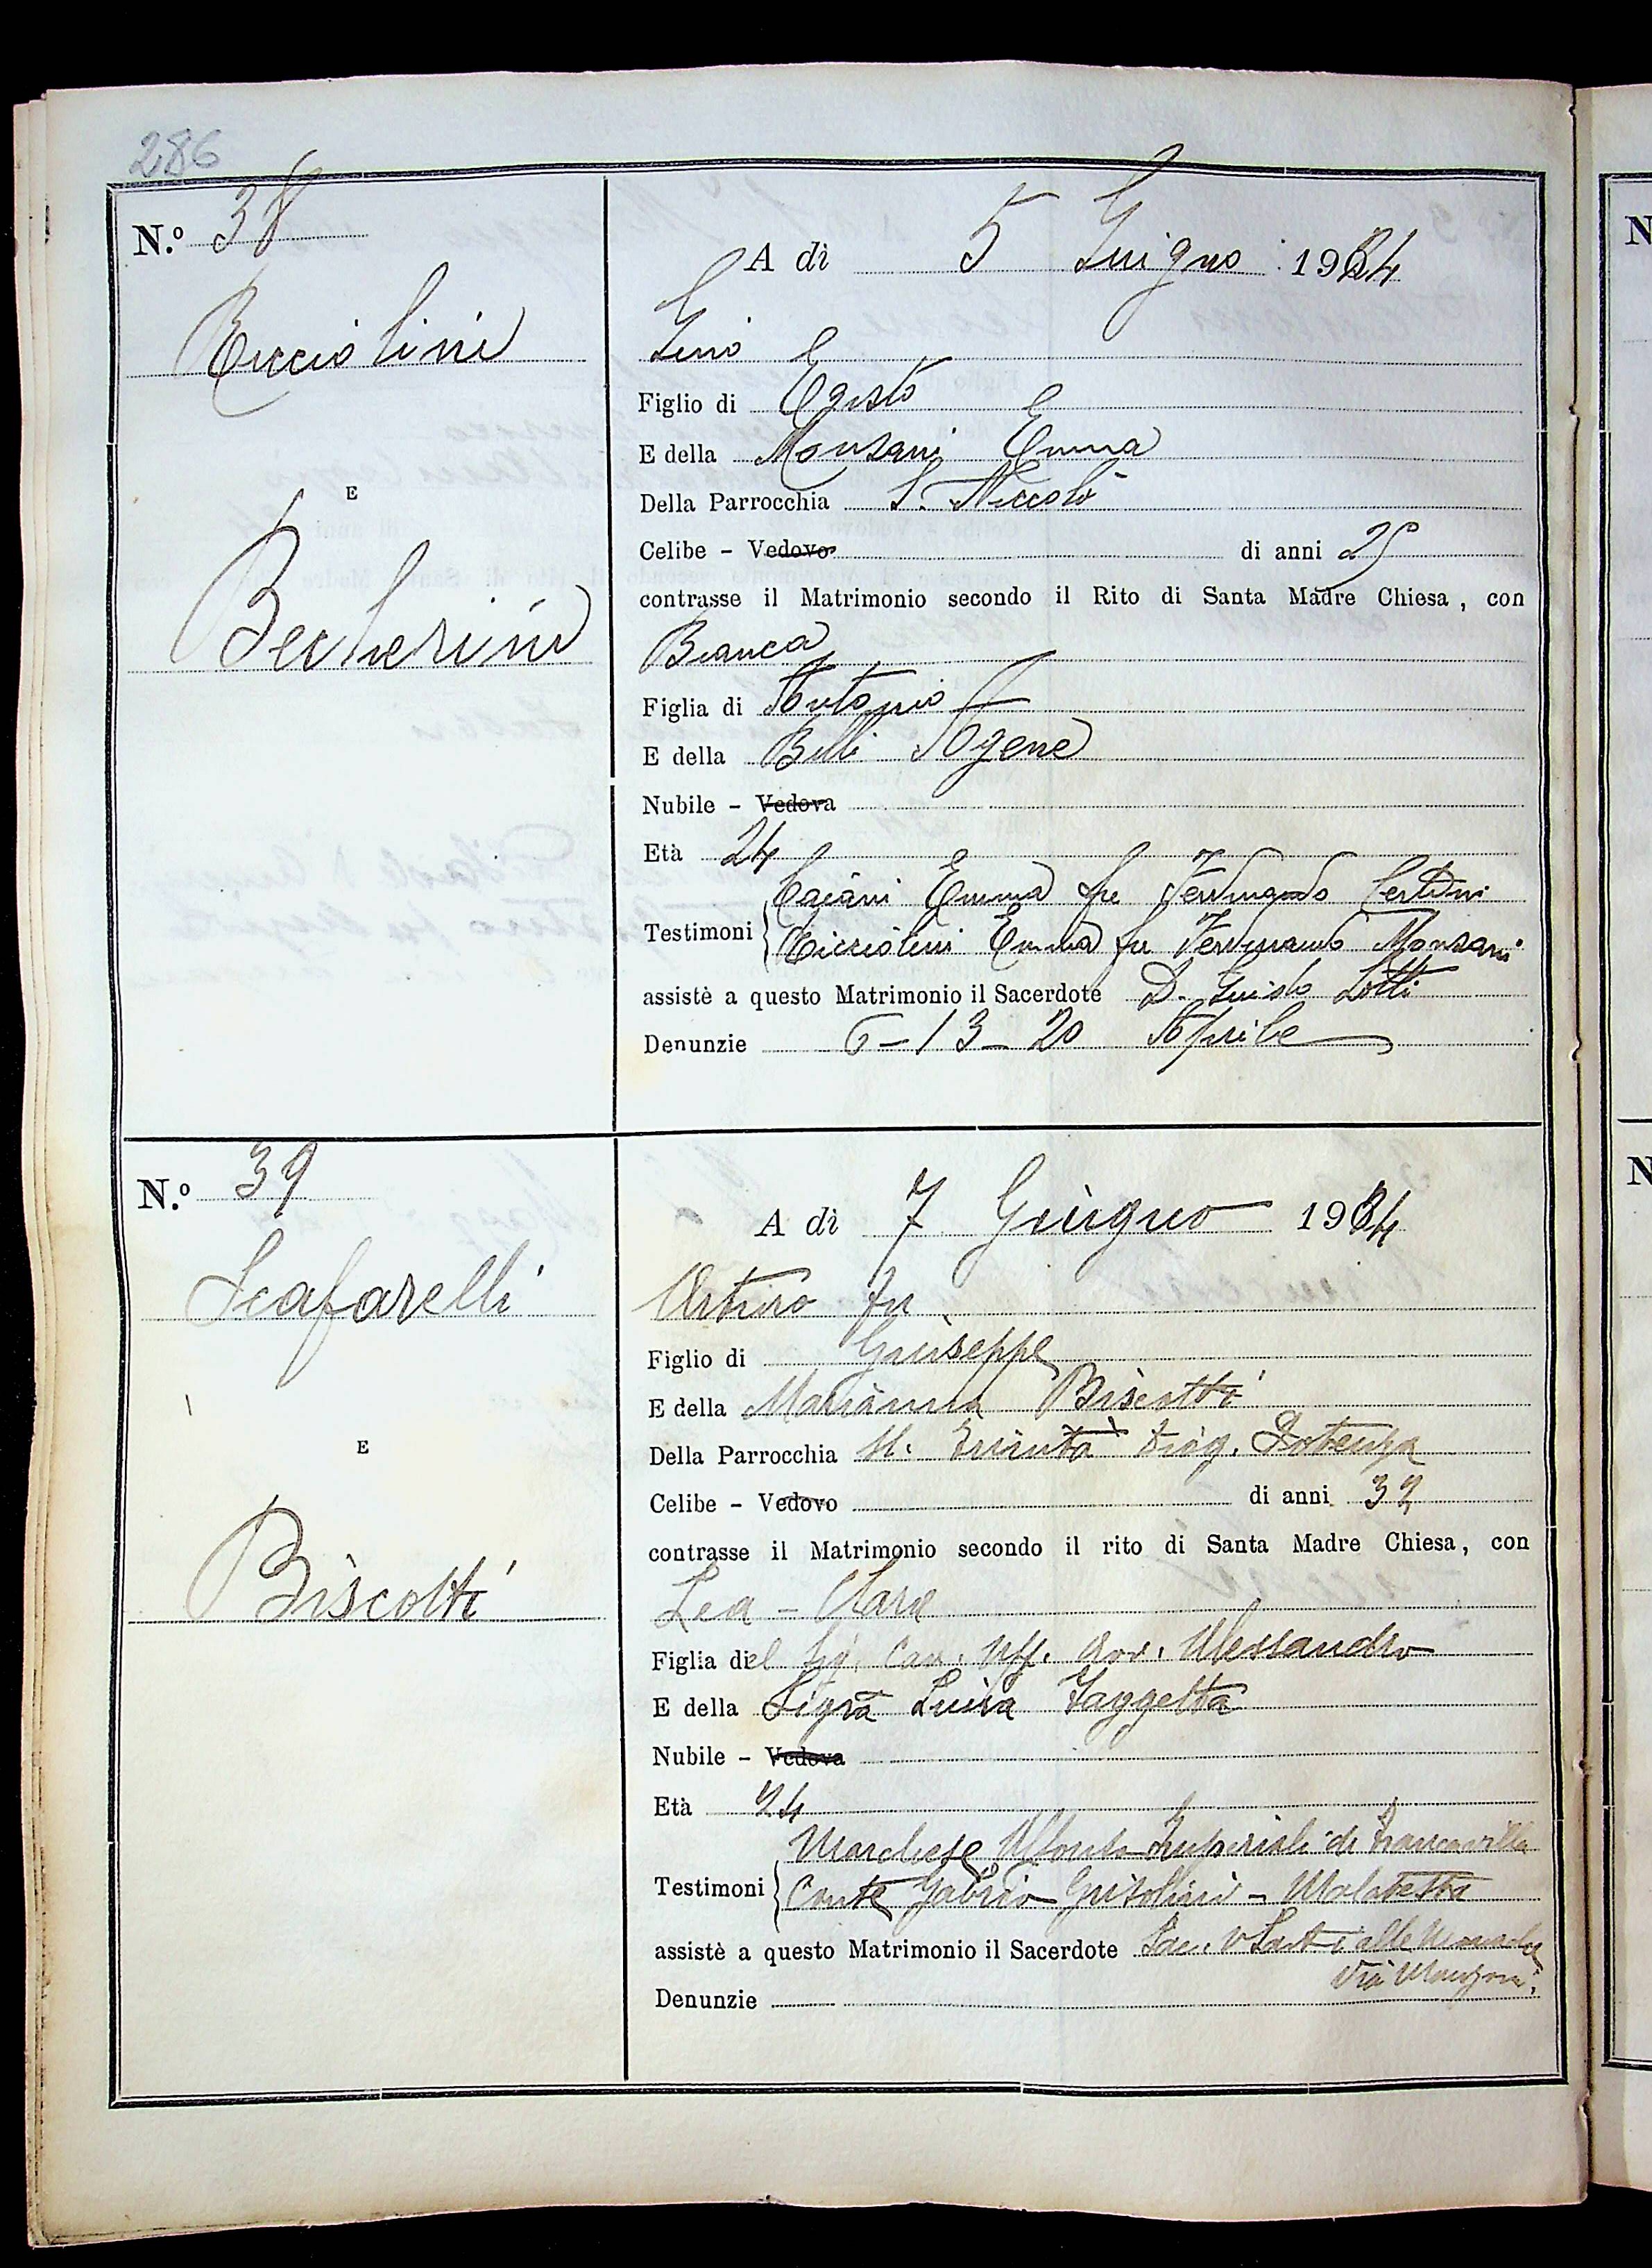 286
N.º 38
A dì 5 Giugno 1924
Ricciolini
Gino
Figlio di Egisto
E della Monsani Emma
E
Della Parrocchia S. Niccolò
Celibe - Vedovo di anni 29
contrasse il Matrimonio secondo il Rito di Santa Madre Chiesa, con
Becherini
Bianca
Figlia di Antonio
E della Billi Agene
Nubile - Vedova
Età 24
Testimoni Caiani Emma fu Ferdinando
Ricciolini Emma fu Ferdinando Monsani
assistè a questo Matrimonio il Sacerdote D. Guido Lotti
Denunzie 6-13-20 Aprile
N.º 39
A dì 7 Giugno 1924
Scafarelli
Arturo fu
Figlio di Giuseppe
E della Marianna Biscotti
E
Della Parrocchia SS. Trinità Potenza
Celibe - Vedovo di anni 32
contrasse il Matrimonio secondo il rito di Santa Madre Chiesa, con
Biscotti
Lea - Clara
Figlia del Sig. Cav. Uff. Avv. Alessandro
E della Sigra Luisa Faggella
Nubile - Vedova
Età 24
Testimoni Marchese Imperiali di Francavilla
Conte Malatesta
assistè a questo Matrimonio il Sacerdote Sac.
Denunzie
N
N